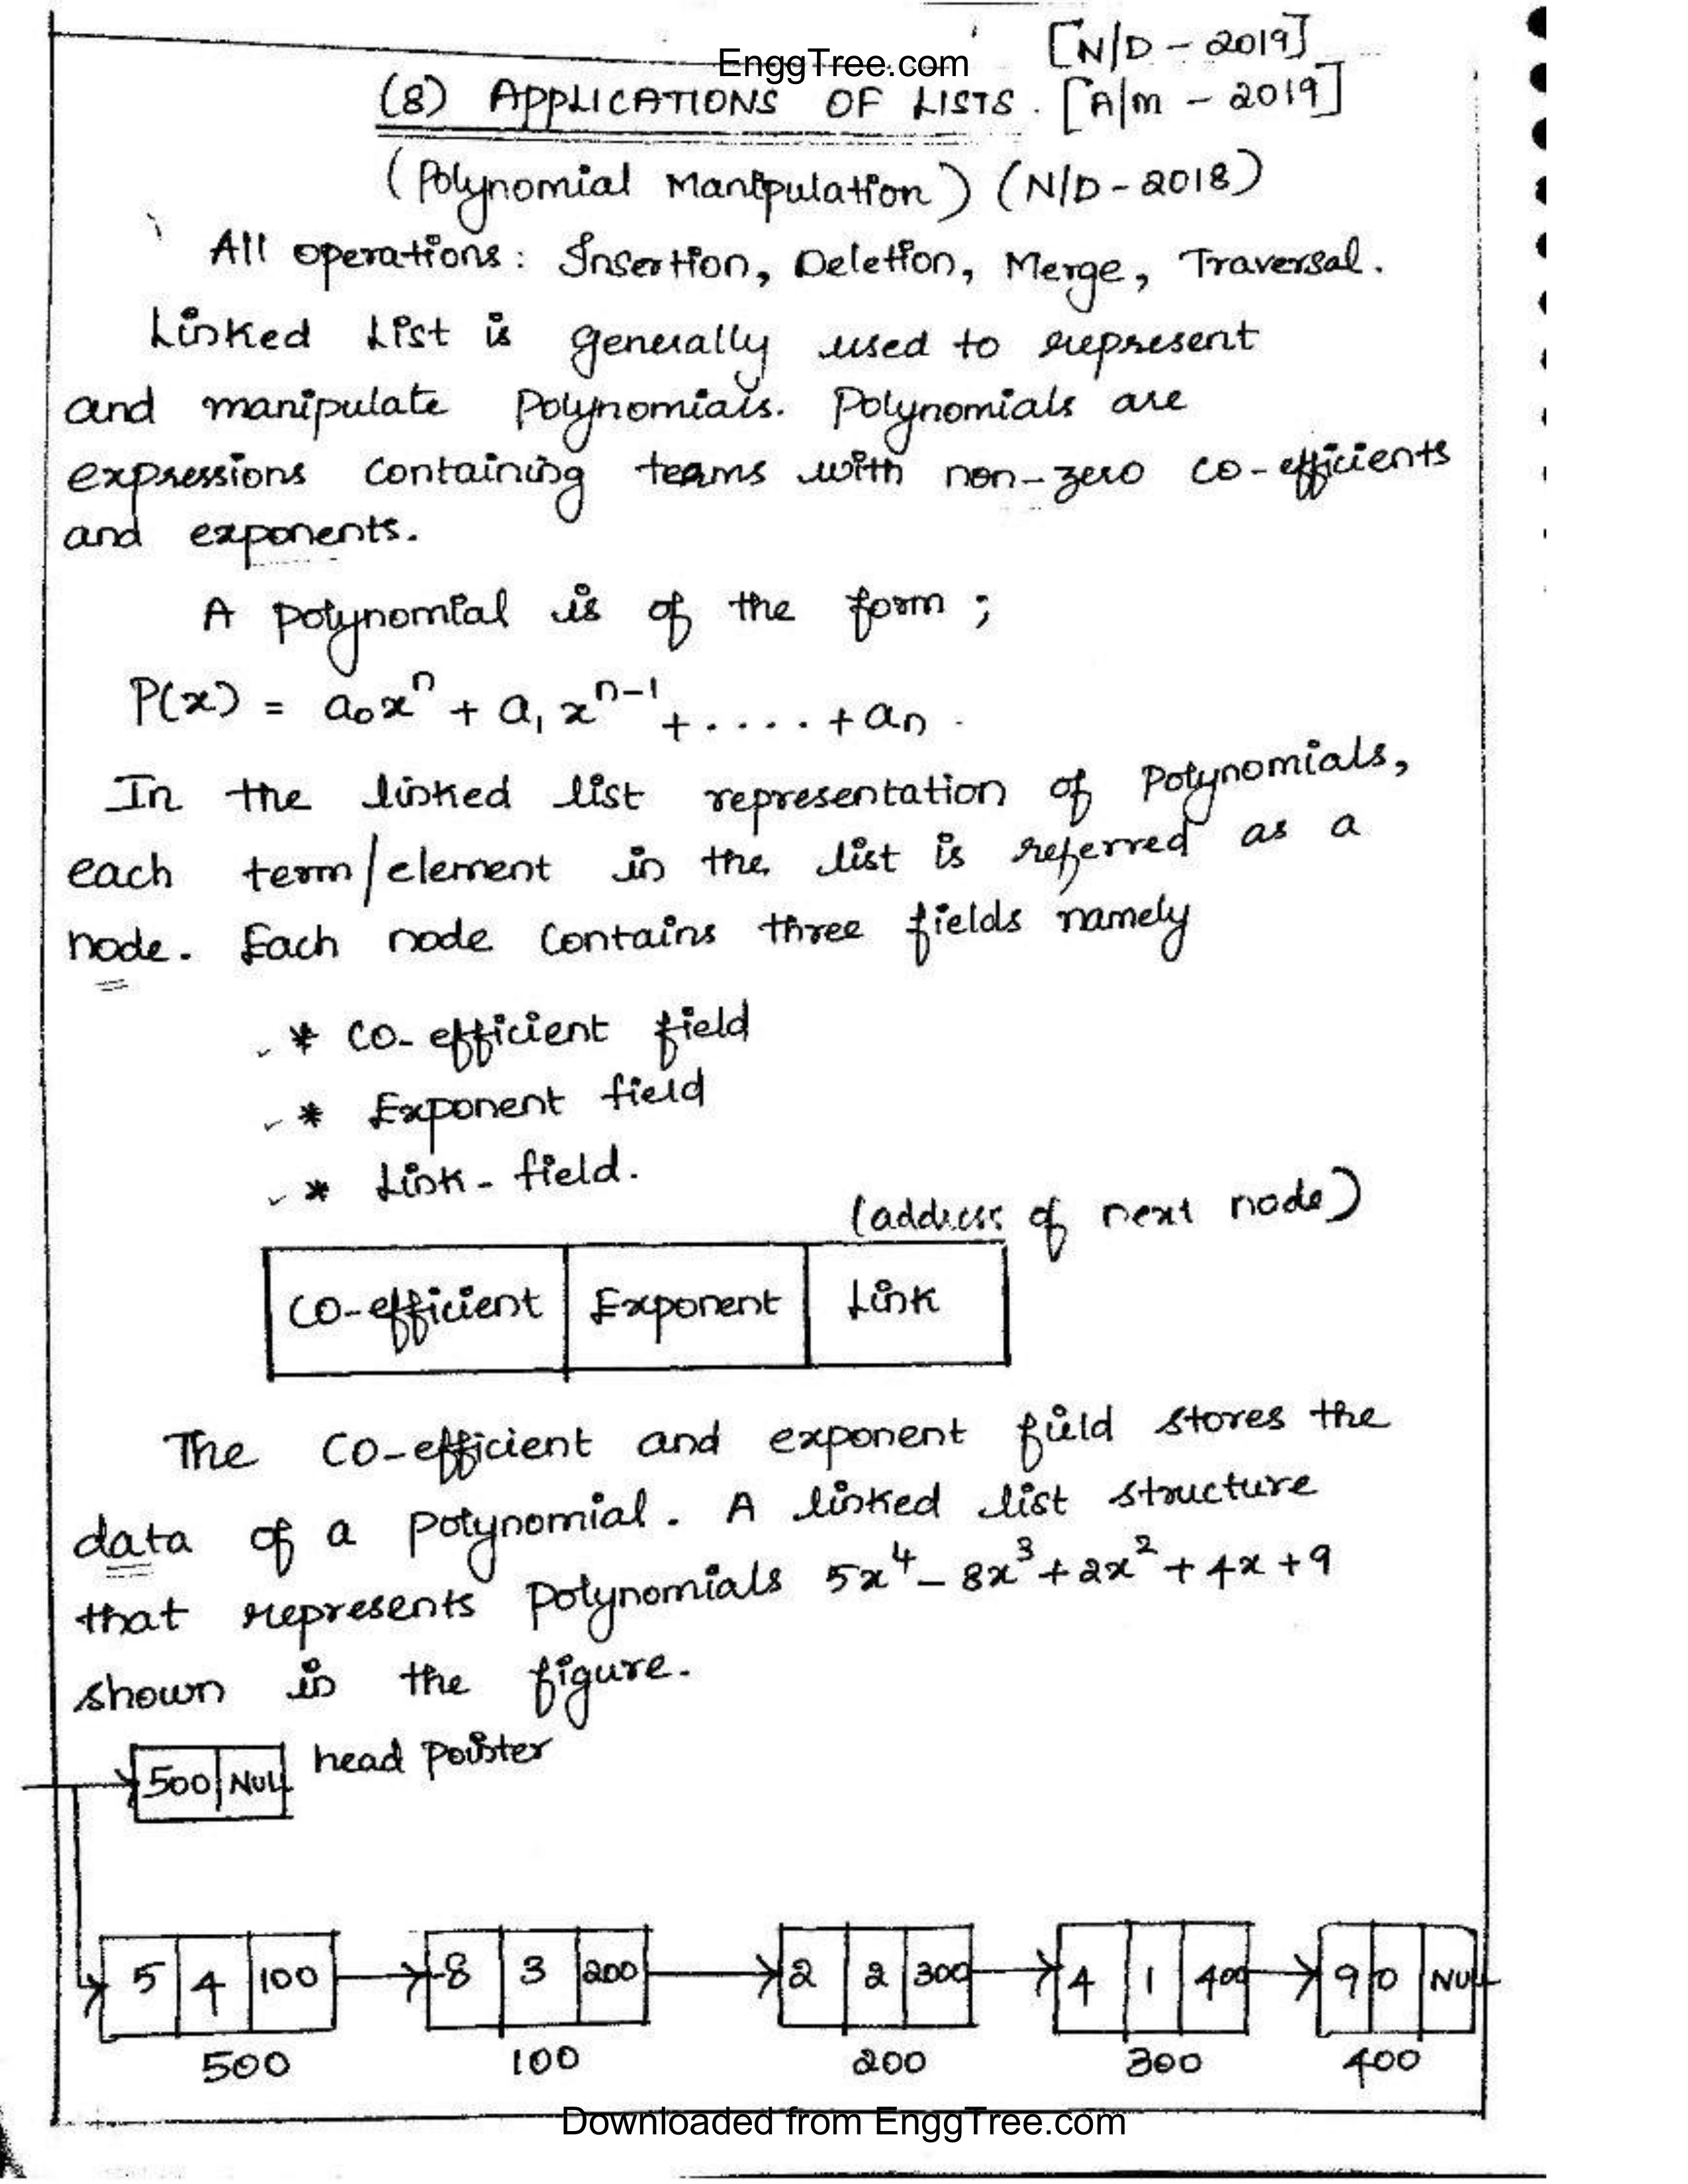 [N/D - 2019]
EnggTree.com
(8) APPLICATIONS OF LISTS. [A/M - 2019]
(Polynomial Manipulation) (N/D-2018)
All operations: Insertion, Deletion, Merge, Traversal.
Linked List is generally used to represent
and manipulate Polynomials. Polynomials are
expressions containing terms with non-zero co-efficients
and exponents.
A polynomial is of the form ;
P(x) = a₀xⁿ + a₁ xⁿ⁻¹ + ..... + aₙ.
In the linked list representation of Polynomials,
each term/element in the list is referred as a
node. Each node contains three fields namely
* Co-efficient field
* Exponent field
* Link-field.
(address of next node)
Co-efficient Exponent Link
The Co-efficient and exponent field stores the
data of a polynomial. A linked list structure
that represents Polynomials 5x⁴ - 8x³ + 2x² + 4x + 9
shown in the figure.
500 NULL head pointer
5 4 100 -8 3 200 2 2 300 4 1 400 9 0 NULL
500 100 200 300 400
Downloaded from EnggTree.com